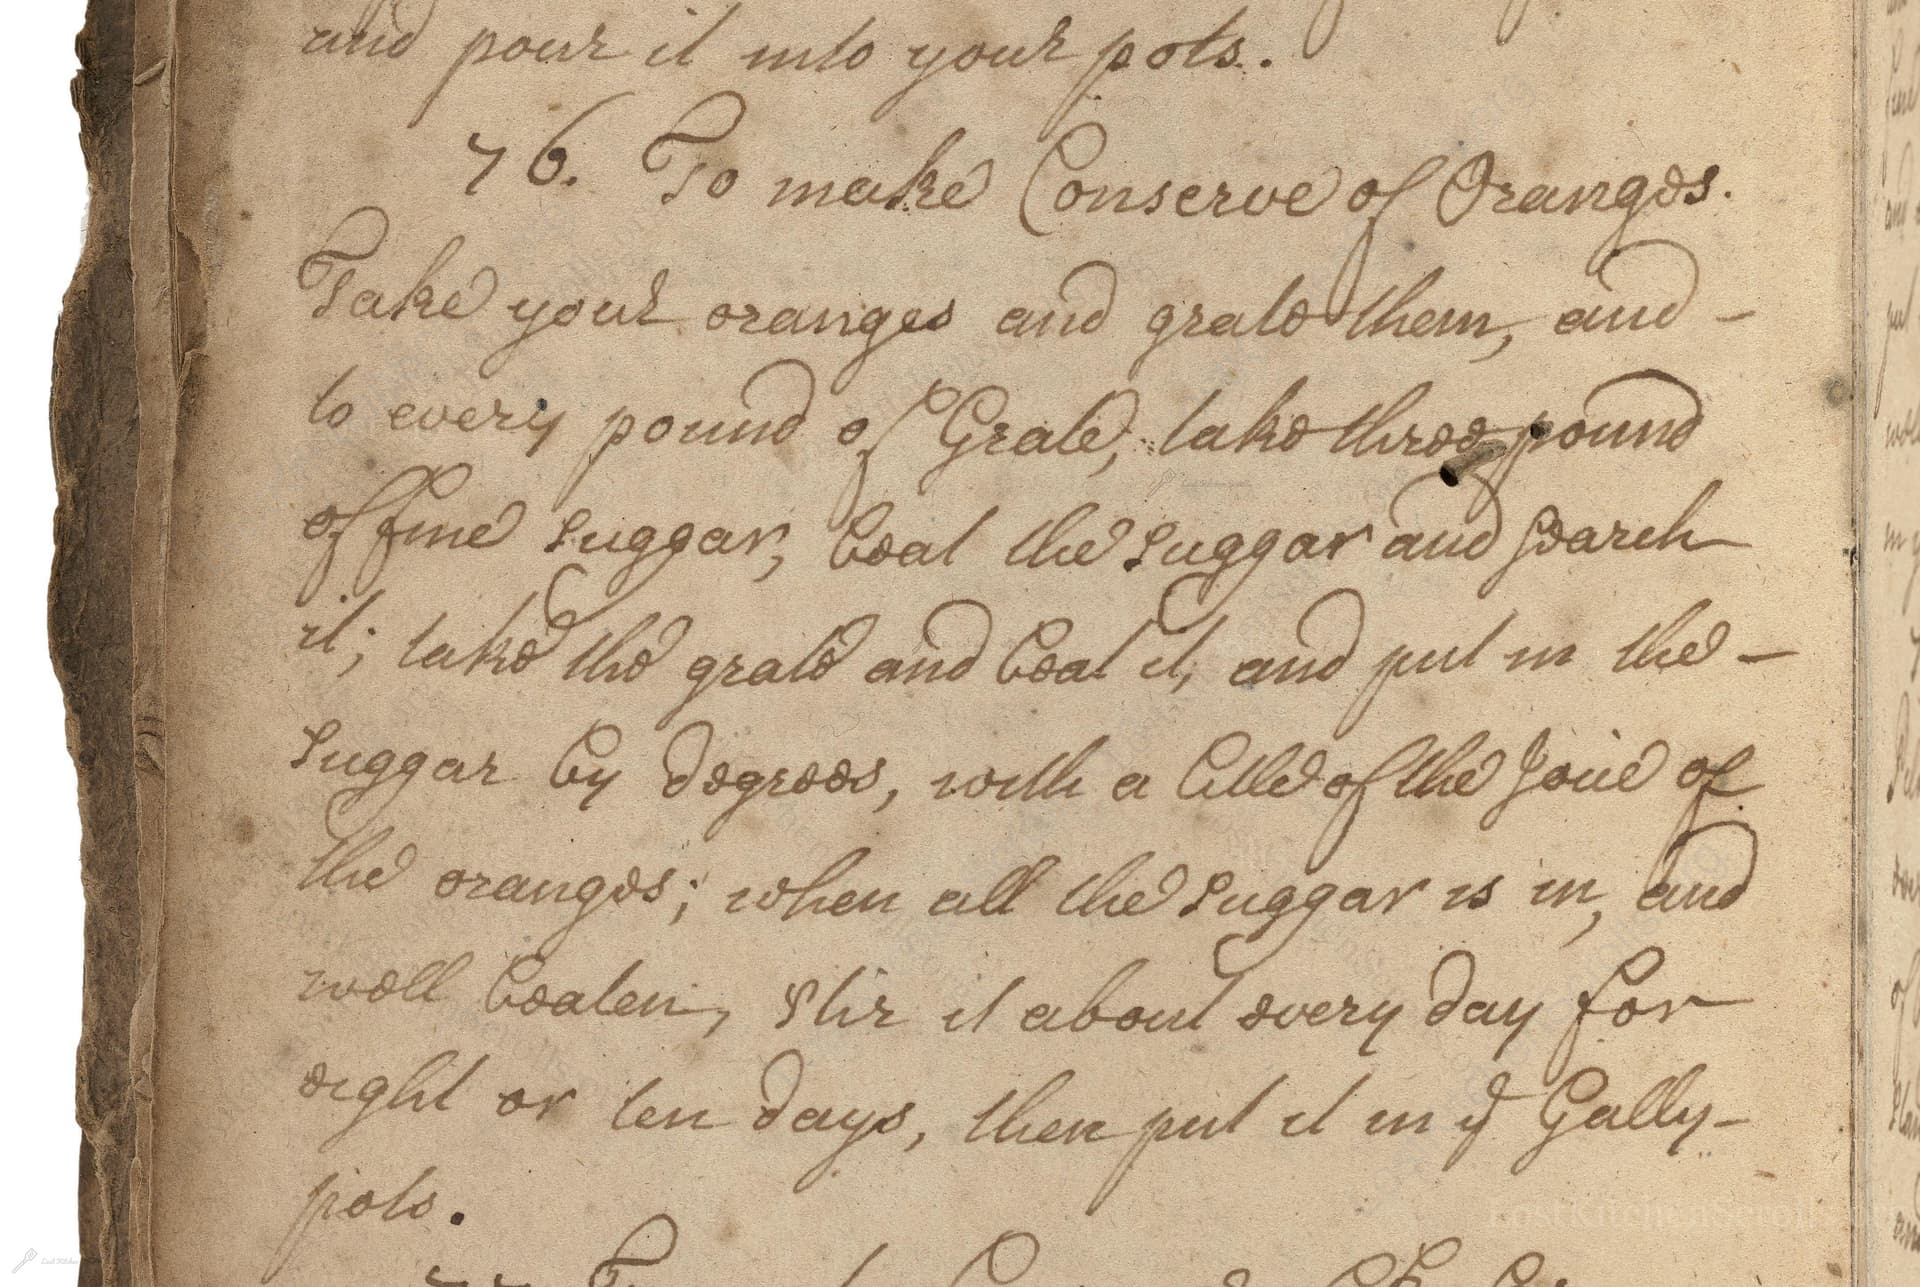 and pour it into your pots.
76. To make Conserve of Oranges.
Take your oranges and grate them, and -
to every pound of Grate, take three pound
of fine suggar, beat the suggar and seareh
it; take the grate and beat it, and put in the -
suggar by degrees, with a little of the Joice of
the oranges; when all the suggar is in, and
well beaten, stir it about every day for
eight or ten days, then put it in yͤ Gally-
pots.
LostKitchenScroll